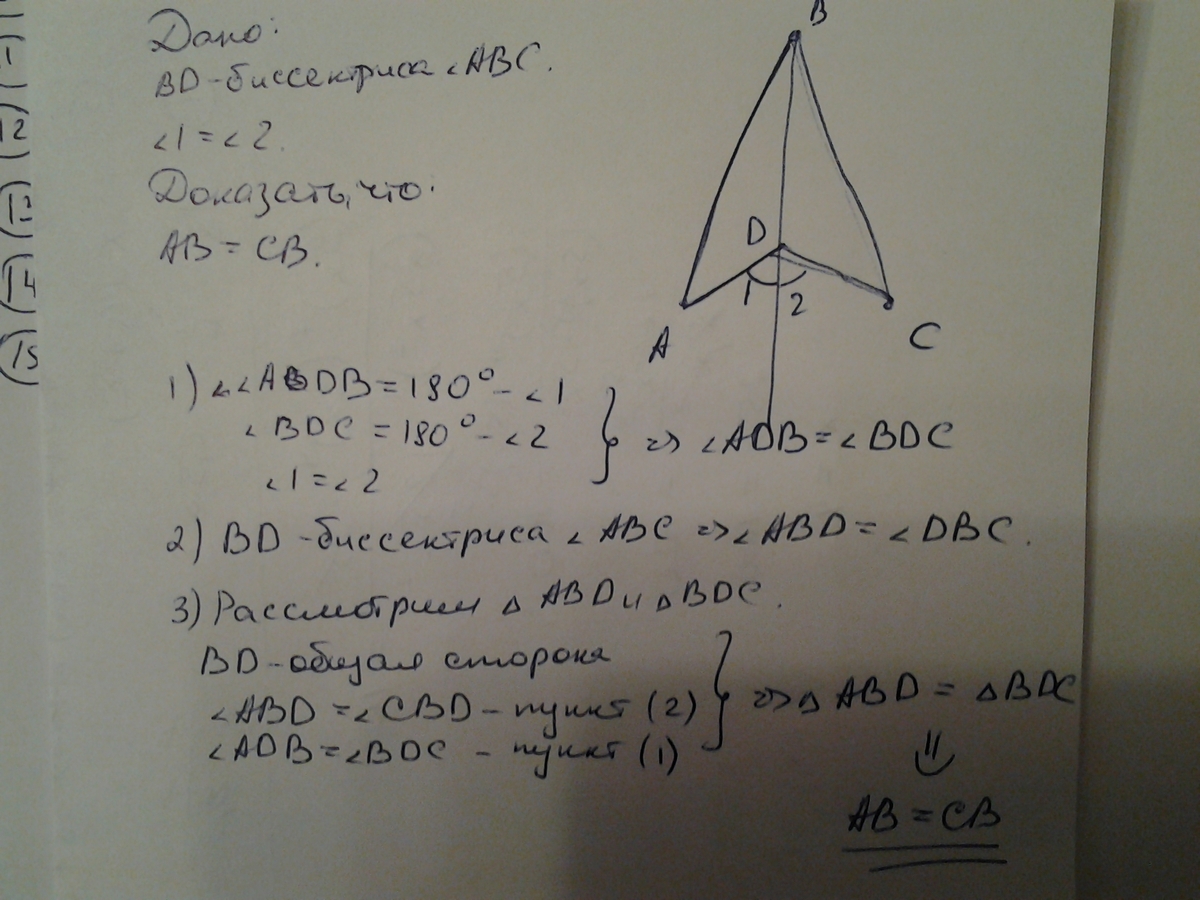 Дано:
BD - биссектриса ∠ABC.
∠1 = ∠2.
Доказать, что:
AB = CB.
B
D
1
2
A
C
1) ∠ADB = 180° - ∠1
∠BDC = 180° - ∠2
∠1 = ∠2
=> ∠ADB = ∠BDC
2) BD - биссектриса ∠ABC => ∠ABD = ∠DBC.
3) Рассмотрим △ABD и △BDC.
BD - общая сторона
∠ABD = ∠CBD - пункт (2)
∠ADB = ∠BDC - пункт (1)
=> △ABD = △BDC
AB = CB
12)
13)
14)
15)